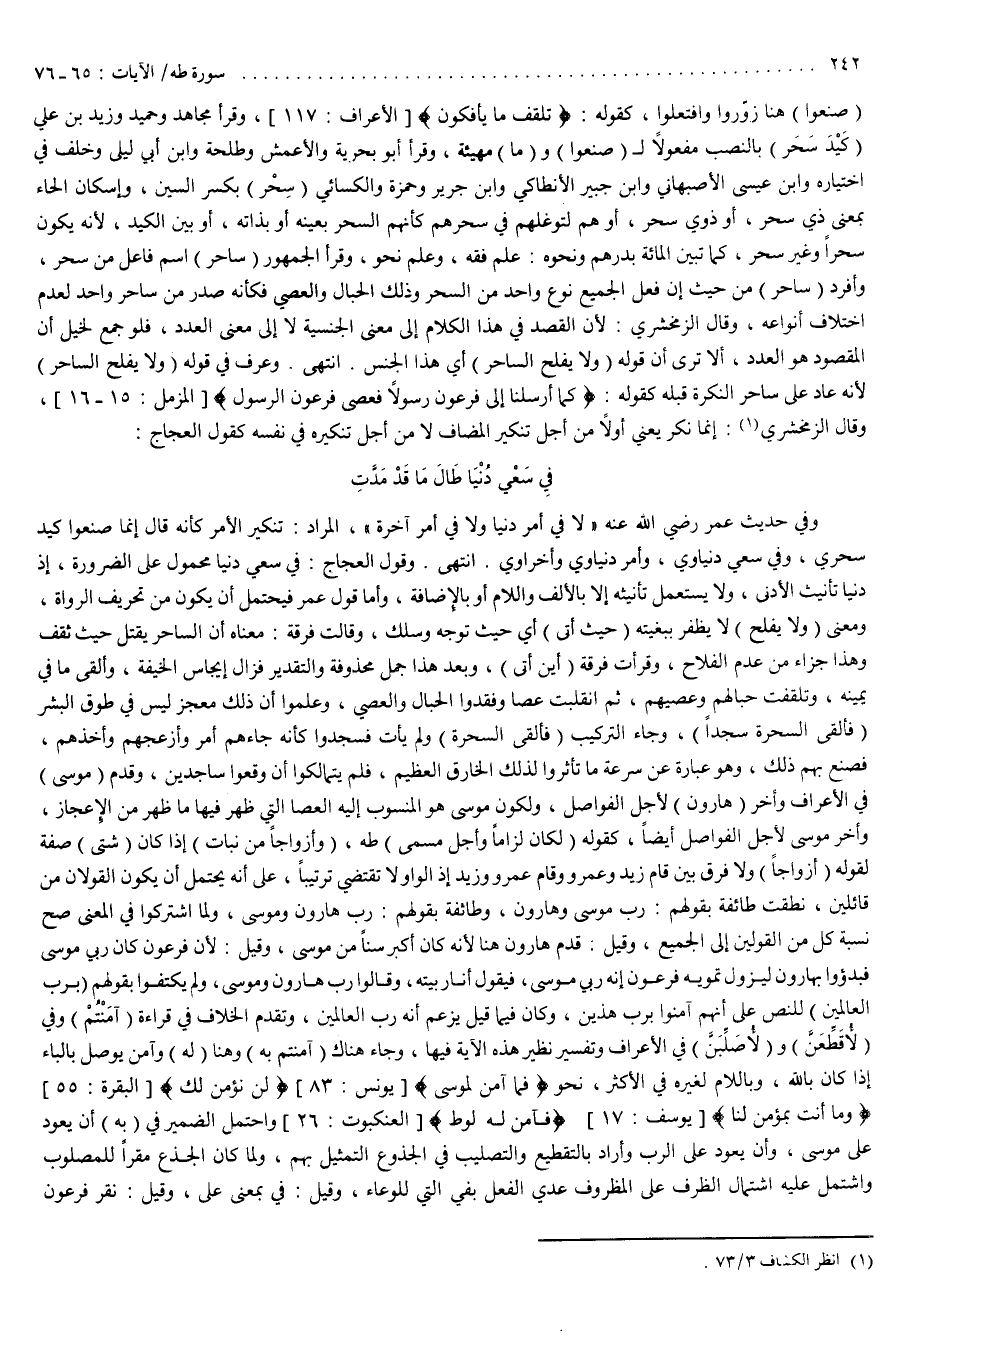 ٢٤٢ . . . . . . . . . . . . . . . . . . . . . . . . . . . . . . . . . . . . . . . . . . . . . . . . سورة طه/ الآيات : ٦٥ ـ ٧٦
( صنعوا ) هنا زوّروا وافتعلوا ، كقوله : ﴿ تلقف ما يأفكون ﴾ [ الأعراف : ١١٧ ] ، وقرأ مجاهد وحميد وزيد بن علي
( كَيْدَ سَحَر ) بالنصب مفعولاً لـ ( صنعوا ) و ( ما ) مهيئة ، وقرأ أبو بحرية والأعمش وطلحة وابن أبي ليلى وخلف في
اختياره وابن عيسى الأصبهاني وابن جبير الأنطاكي وابن جرير وحمزة والكسائي ( سِحْر ) بكسر السين ، وإسكان الحاء
بمعنى ذي سحر ، أو ذوي سحر ، أو هم لتوغلهم في سحرهم كأنهم السحر بعينه أو بذاته ، أو بين الكيد ، لأنه يكون
سحراً وغير سحر ، كما تبين المائة بدرهم ونحوه : علم فقه ، وعلم نحو ، وقرأ الجمهور ( ساحر ) اسم فاعل من سحر ،
وأفرد ( ساحر ) من حيث إن فعل الجميع نوع واحد من السحر وذلك الحبال والعصي فكأنه صدر من ساحر واحد لعدم
اختلاف أنواعه ، وقال الزمخشري : لأن القصد في هذا الكلام إلى معنى الجنسية لا إلى معنى العدد ، فلو جمع لخيل أن
المقصود هو العدد ، ألا ترى أن قوله ( ولا يفلح الساحر ) أي هذا الجنس . انتهى . وعرف في قوله ( ولا يفلح الساحر )
لأنه عاد على ساحر النكرة قبله كقوله : ﴿ كما أرسلنا إلى فرعون رسولاً فعصى فرعون الرسول ﴾ [ المزمل : ١٥ ـ ١٦ ] ،
وقال الزمخشري(١) : إنما نكر يعني أولاً من أجل تنكير المضاف لا من أجل تنكيره في نفسه كقول العجاج :
فِي سَعْيِ دُنْيَا طَالَ مَا قَدْ مَدَّتِ
وفي حديث عمر رضي الله عنه « لا في أمر دنيا ولا في أمر آخرة » ، المراد : تنكير الأمر كأنه قال إنما صنعوا كيد
سحري ، وفي سعي دنياوي ، وأمر دنياوي وأخراوي . انتهى . وقول العجاج : في سعي دنيا محمول على الضرورة ، إذ
دنيا تأنيث الأدنى ، ولا يستعمل تأنيثه إلا بالألف واللام أو بالإضافة ، وأما قول عمر فيحتمل أن يكون من تحريف الرواة ،
ومعنى ( ولا يفلح ) لا يظفر ببغيته ( حيث أتى ) أي حيث توجه وسلك ، وقالت فرقة : معناه أن الساحر يقتل حيث ثقف
وهذا جزاء من عدم الفلاح ، وقرأت فرقة ( أين أتى ) ، وبعد هذا جمل محذوفة والتقدير فزال إيجاس الخيفة ، وألقى ما في
يمينه ، وتلقفت حبالهم وعصيهم ، ثم انقلبت عصا وفقدوا الحبال والعصي ، وعلموا أن ذلك معجز ليس في طوق البشر
( فألقى السحرة سجداً ) ، وجاء التركيب ( فألقى السحرة ) ولم يأت فسجدوا كأنه جاءهم أمر وأزعجهم وأخذهم ،
فصنع بهم ذلك ، وهو عبارة عن سرعة ما تأثروا لذلك الخارق العظيم ، فلم يتمالكوا أن وقعوا ساجدين ، وقدم ( موسى )
في الأعراف وأخر ( هارون ) لأجل الفواصل ، ولكون موسى هو المنسوب إليه العصا التي ظهر فيها ما ظهر من الإعجاز ،
وأخر موسى لأجل الفواصل أيضاً ، كقوله ( لكان لزاماً وأجل مسمى ) طه ، ( وأزواجاً من نبات ) إذا كان ( شتى ) صفة
لقوله ( أزواجاً ) ولا فرق بين قام زيد وعمرو وقام عمرو وزيد إذ الواو لا تقتضي ترتيباً ، على أنه يحتمل أن يكون القولان من
قائلين ، نطقت طائفة بقولهم : رب موسى وهارون ، وطائفة بقولهم : رب هارون وموسى ، ولما اشتركوا في المعنى صح
نسبة كل من القولين إلى الجميع ، وقيل : قدم هارون هنا لأنه كان أكبر سناً من موسى ، وقيل : لأن فرعون كان ربي موسى
فبدؤوا بهارون ليزول تمويه فرعون إنه ربي موسى، فيقول أنا ربيته، وقالوا رب هارون وموسى، ولم يكتفوا بقولهم (برب
العالمين ) للنص على أنهم آمنوا برب هذين ، وكان فيما قيل يزعم أنه رب العالمين ، وتقدم الخلاف في قراءة ( آمَنْتُمْ ) وفي
( لُأقَطِّعَنَّ ) و ( لُأصَلِّبَنَّ ) في الأعراف وتفسير نظير هذه الآية فيها ، وجاء هناك ( آمنتم به ) وهنا ( له ) وآمن يوصل بالباء
إذا كان بالله ، وباللام لغيره في الأكثر ، نحو ﴿ فما آمن لموسى ﴾ [ يونس : ٨٣ ] ﴿ لن نؤمن لك ﴾ [ البقرة : ٥٥ ]
﴿ وما أنت بمؤمن لنا ﴾ [ يوسف : ١٧ ] ﴿فآمن له لوط ﴾ [ العنكبوت : ٢٦ ] واحتمل الضمير في ( به ) أن يعود
على موسى ، وأن يعود على الرب وأراد بالتقطيع والتصليب في الجذوع التمثيل بهم ، ولما كان الجذع مقراً للمصلوب
واشتمل عليه اشتمال الظرف على المظروف عدي الفعل بفي التي للوعاء ، وقيل : في بمعنى على ، وقيل : نقر فرعون
(١) انظر الكشاف ٧٣/٣ .